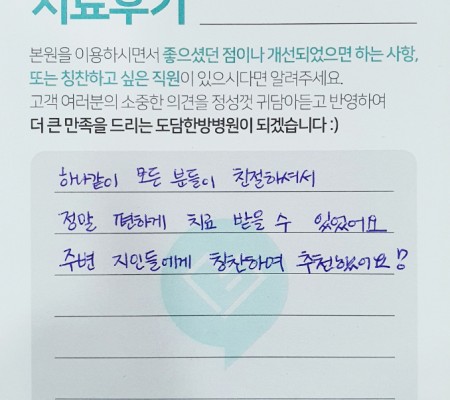 치료후기
본원을 이용하시면서 좋으셨던 점이나 개선되었으면 하는 사항,
또는 칭찬하고 싶은 직원이 있으시다면 알려주세요.
고객 여러분의 소중한 의견을 정성껏 귀담아듣고 반영하여
더 큰 만족을 드리는 도담한방병원이 되겠습니다 :)
하나같이 모든 분들이 친절하셔서
정말 편하게 치료 받을 수 있었어요
주변 지인들에게 칭찬하며 추천했어요!